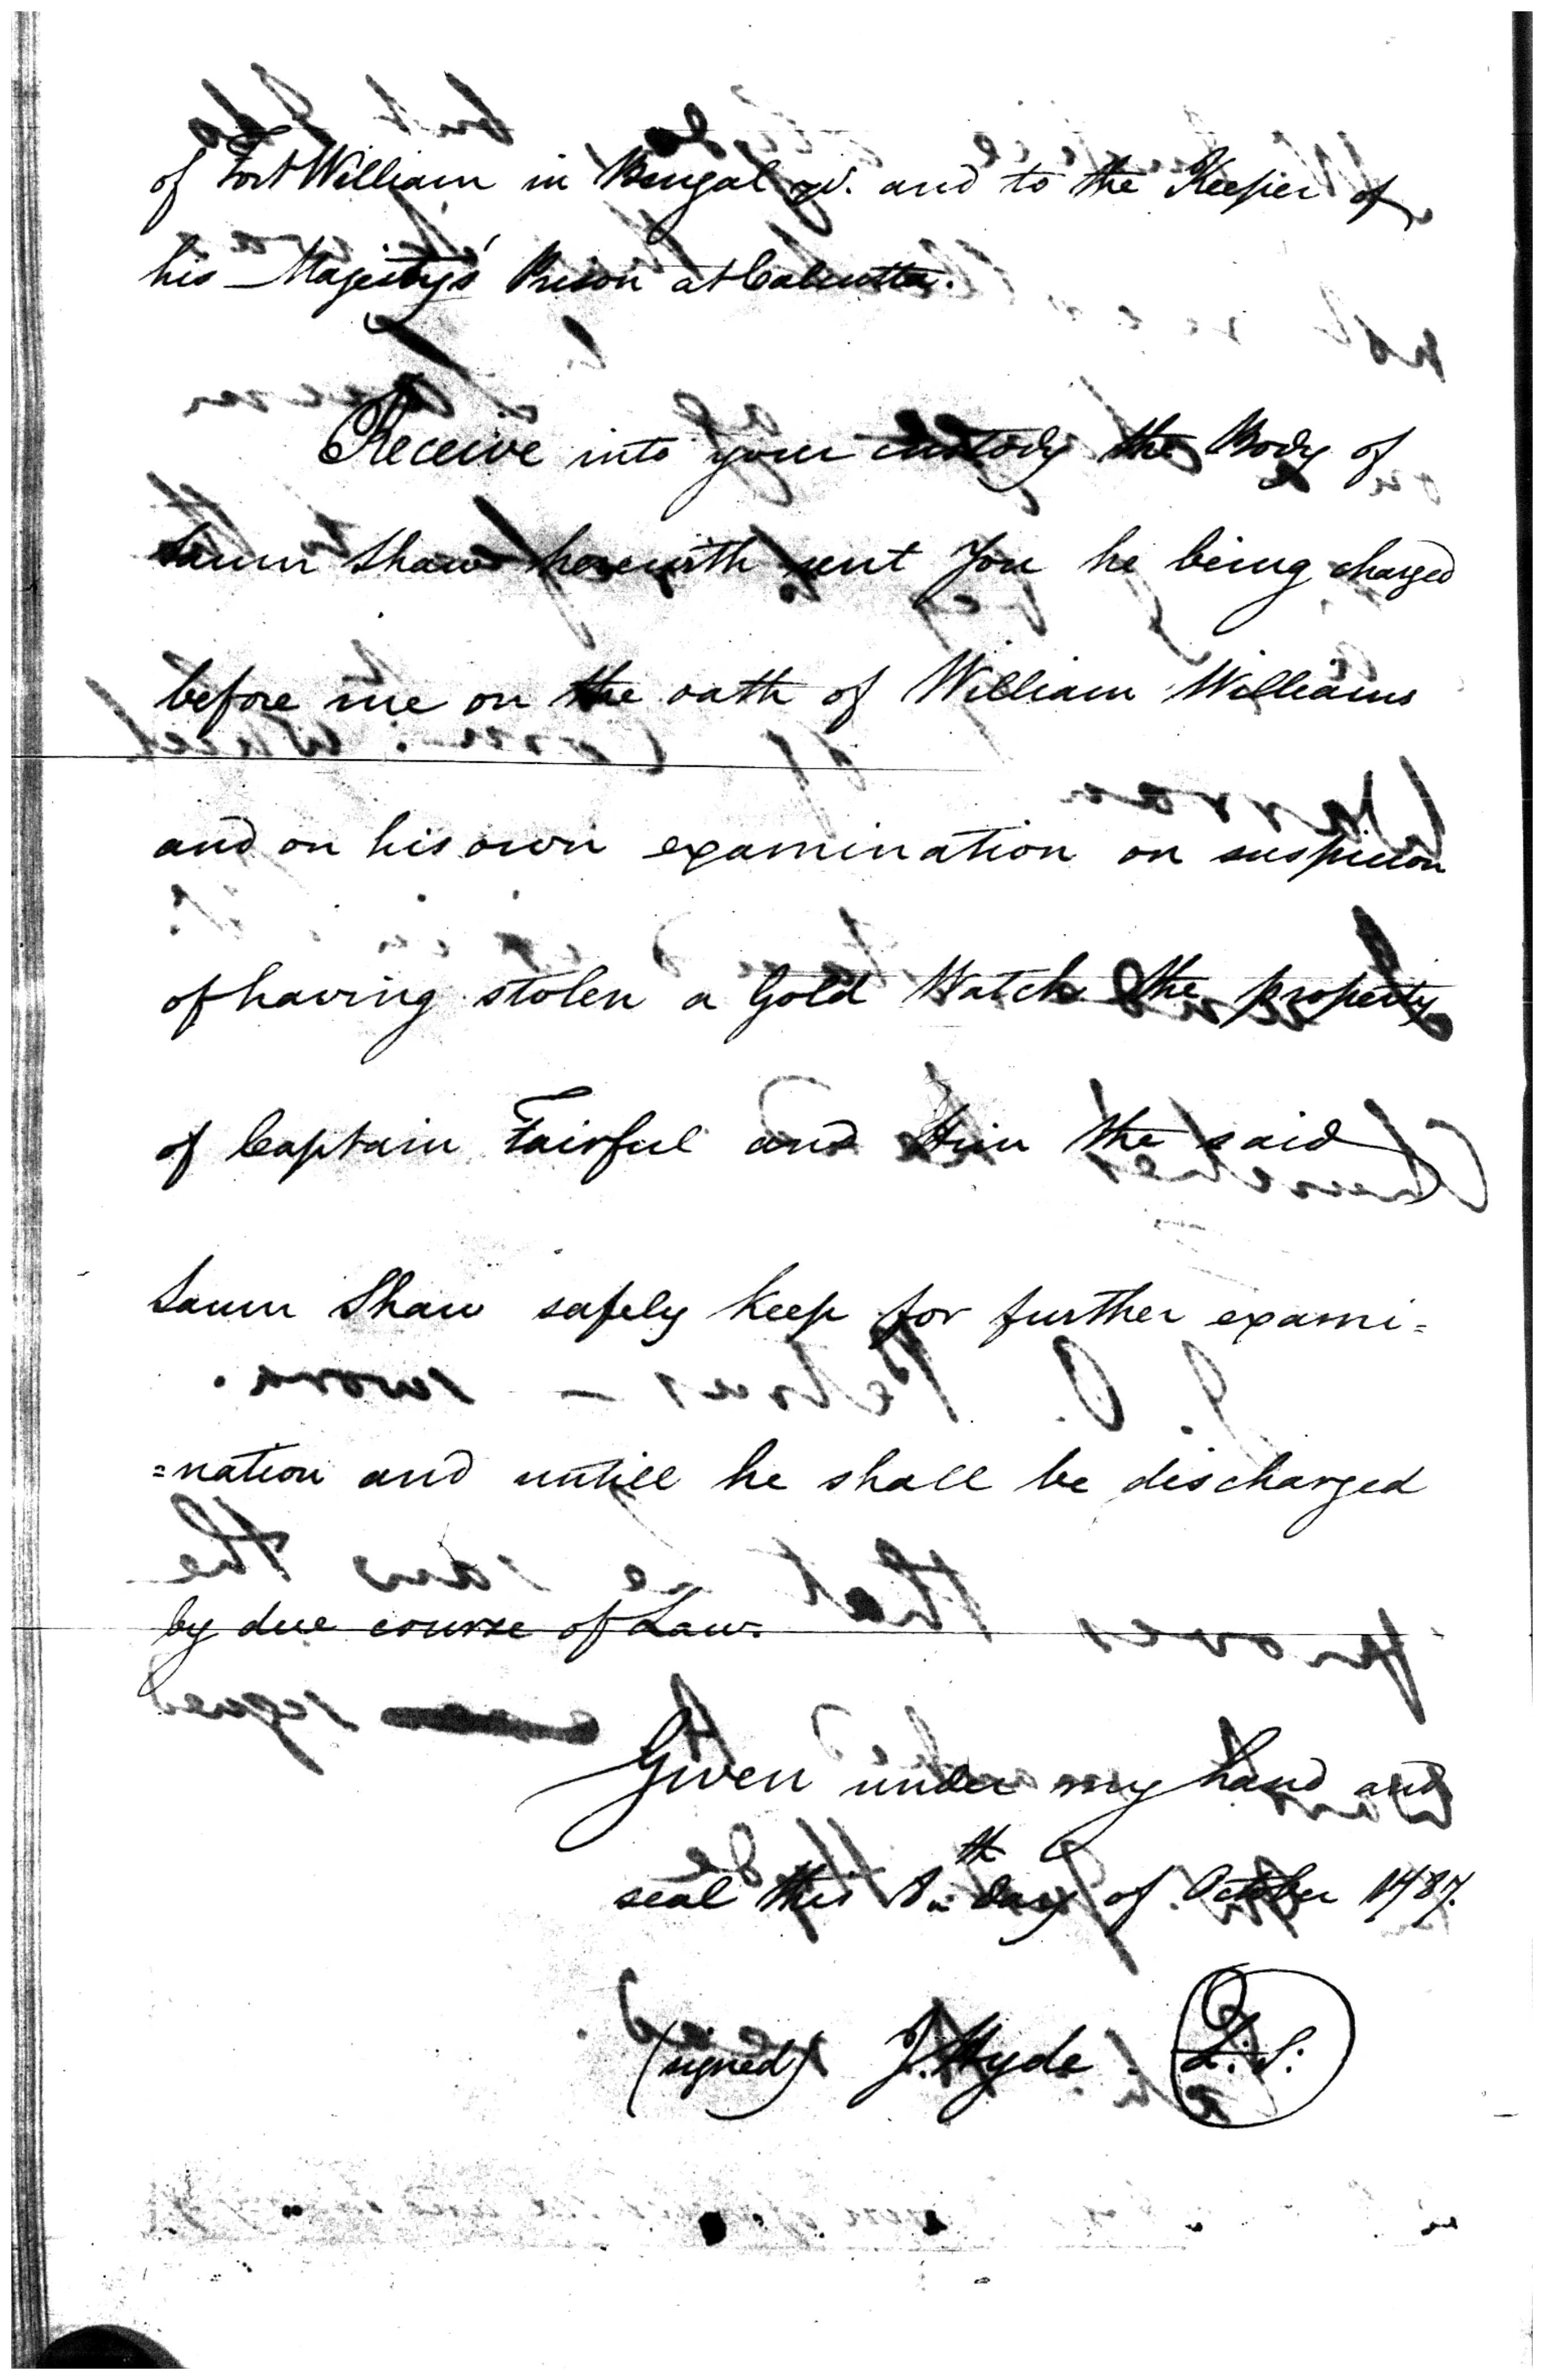 of Fort William in Bengal &c. and to the Keeper of
his Majesty's Prison at Calcutta.
Receive into your custody the Body of
Saum Shaw herewith sent You he being charged
before me on the oath of William Williams
and on his own examination on suspicion
of having stolen a Gold Watch the property
of Captain Fairful and Him the said
Saum Shaw safely keep for further exami=
=nation and untill he shall be discharged
by due course of Law.
Given under my hand and
seal this day of October 1787.
(signed) J. Hyde L.S.